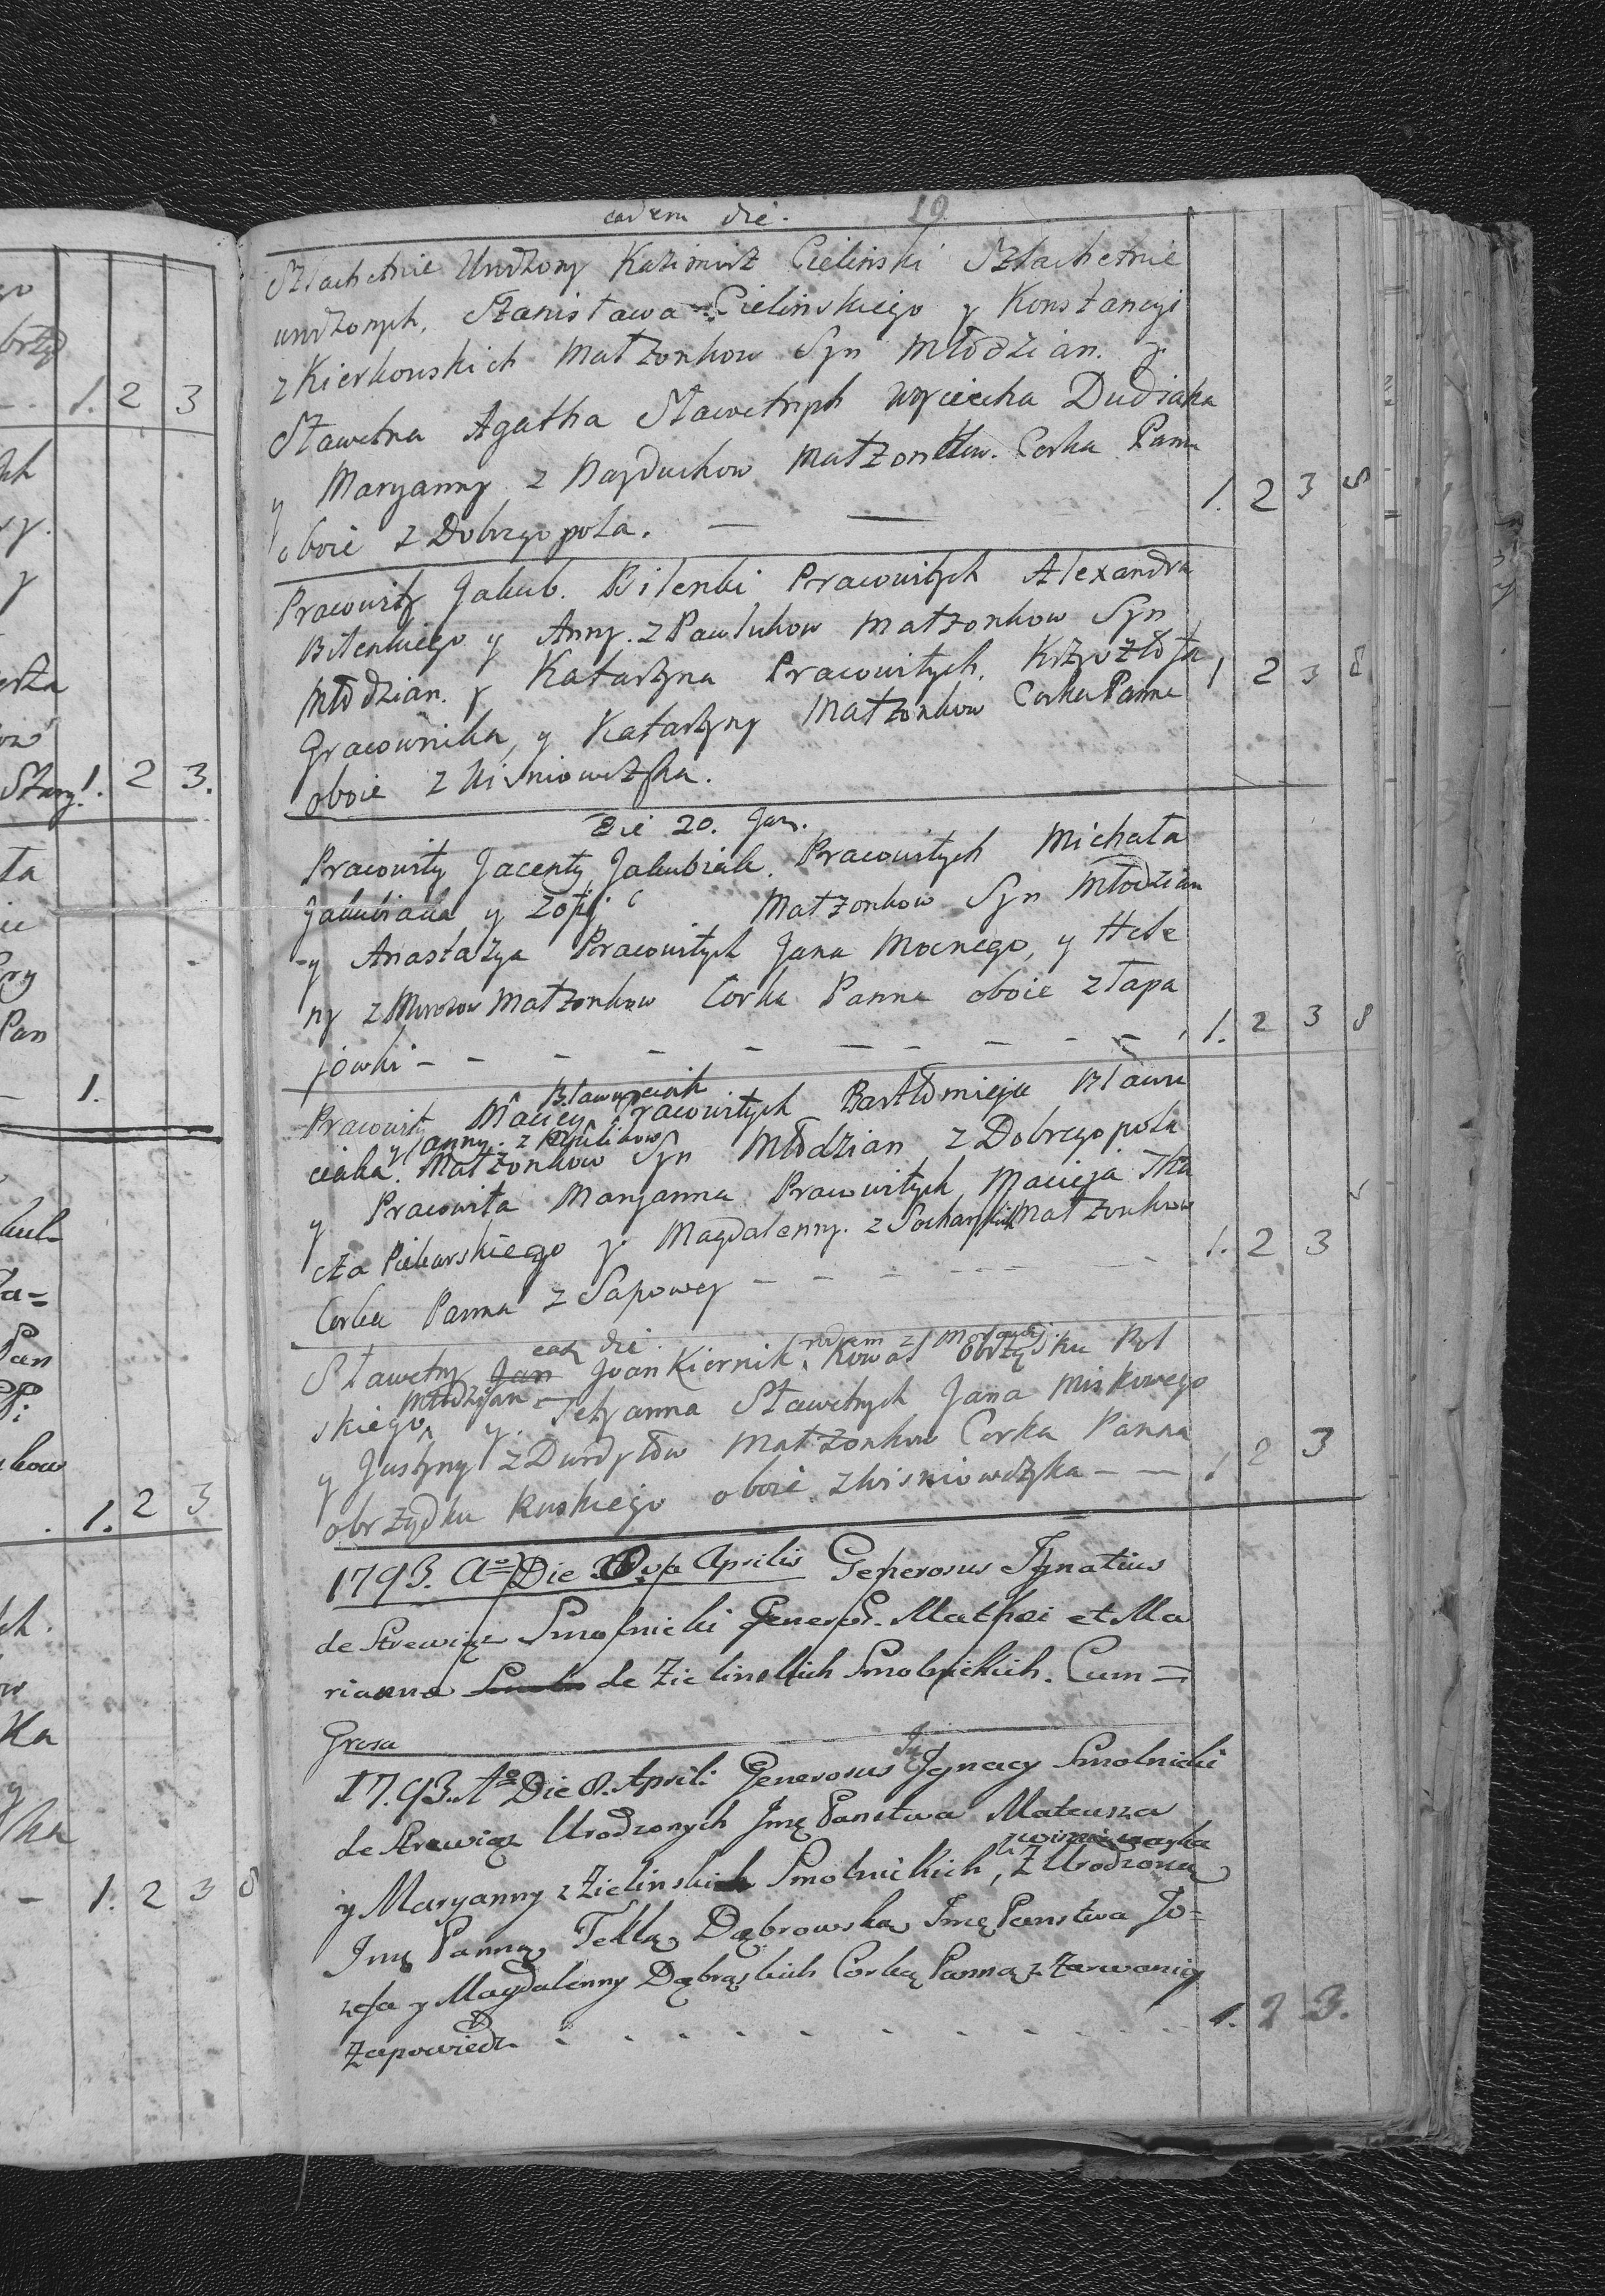 eadem die. 19
Szlachetnie Urodzony Kazimirz Cielinski Szlachetnie
urodzonych, Stanisława Cielinskiego y Konstancyi
z Kierkowskich Małzonkow Syn Młodzian. y
Sławetna Agatha Sławetnych Woyciecha Dudiaka
y Maryanny z Bayduckow Małzonkow. Corka Panna
oboie z Dobrzopola. — — 1. 2 3 8
Pracowity Jakub. Bilenki Pracowitych Alexandra
Bilenkiego y Anny. z Pawlukow Małzonkow Syn
Młodzian. y Katarzyna Pracowitych. Krzysztofa 1 2 3 8
Gracownika, y Katarzyny Małzonkow Corka Panna
oboie z Wisniowczyka.
Die 20. Jan.
Pracowity Jacenty Jakubiak. Pracowitych Michała
Jakubiaka y Zofij Małzonkow Syn Młodzian
-y Anastazya Pracowitych Jana Mocnego, y Hele
ny z Mrozow Małzonkow Corka Panna oboie z Łapa
jowki - - - - - - - - - - 1. 2 3 8
Bławuciak
Pracowity Maciey Pracowitych Bartłomieja Bławu
y Anny. z Kulikow
ciaka. Małzonkow Syn Młodzian z Dobrzopola
y Pracowita Maryanna Pracowitych Macieja Tka
cza Piekarskiego y Magdalenny. z Sochanskich Małzonkow
Corka Panna z Sapowey - - - - - - 1. 2 3
ead die. rodem z Morawij
Sławetny Jan Joan Kiernik, Kowal Obrządku Pol
Młodzian
skiego, y. Tetyanna Sławetnych Jana Miskowego
y Justyny z Durdyłow Małzonkow Corka Panna
obrządku Ruskiego oboie z Wisniowczyka - — 1 2 3
1793. Aº Die 8va Aprilis Generosus Ignatius
de Strewiąz Smolnicki Generos. Mathei et Ma
rianna de Zielinskich Smolnickich. Cum =
Grosa
1793. Aº Die 8. April: Generosus Ignacy Smolnicki
de Strewiąz Urodzonych Jmę Panstwa Mateusza
z wisniowczyka
y Maryanny z Zielinskich Smolnickich, Z Urodzoną
Jmę Panną Teklą Dąbrowską Jmę Panstwa Jo=
zefa y Magdalenny Dąbrąskich Corką Panną z Zarwanicy
Zapowiedz. - - - - - - - - - - 1. 2 3.